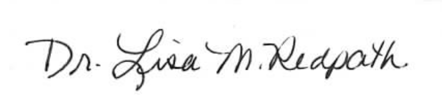 Dr. Lisa M. Redpath